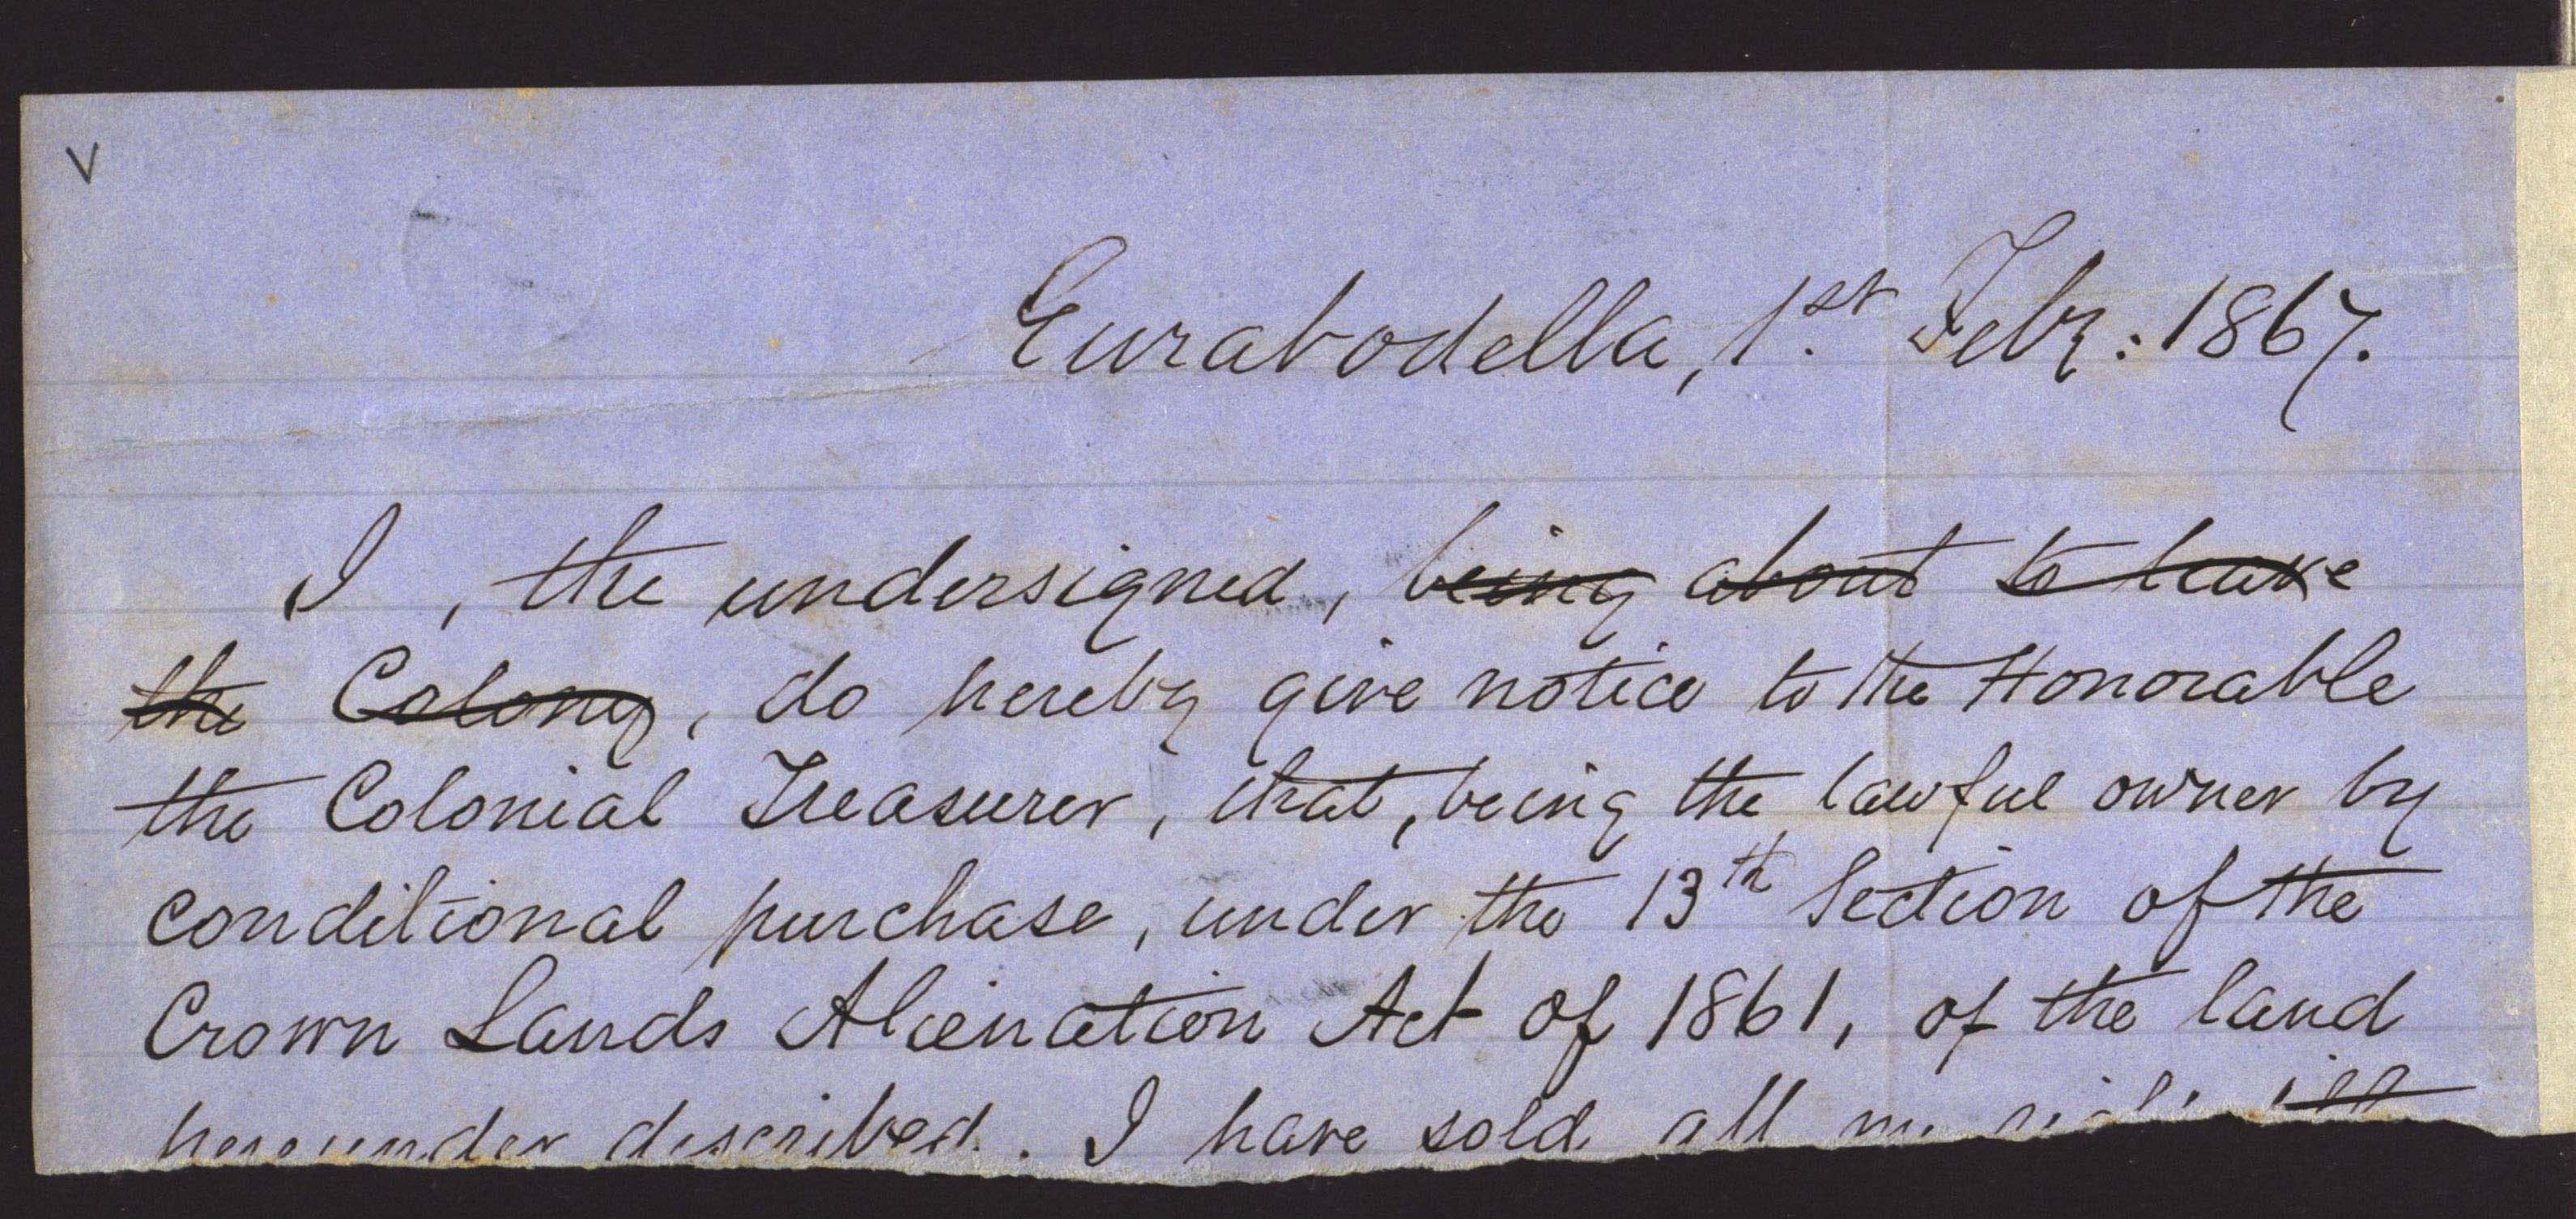 V
Eurabodella, 1st Feby: 1867.
I, the undersigned, ~~being about to leave~~
~~the Colony~~, do hereby give notice to the Honorable
the Colonial Treasurer, that, being the lawful owner by
conditional purchase, under the 13th Section of the
Crown Lands Alienation Act of 1861, of the land
hereunder described. I have sold all my right